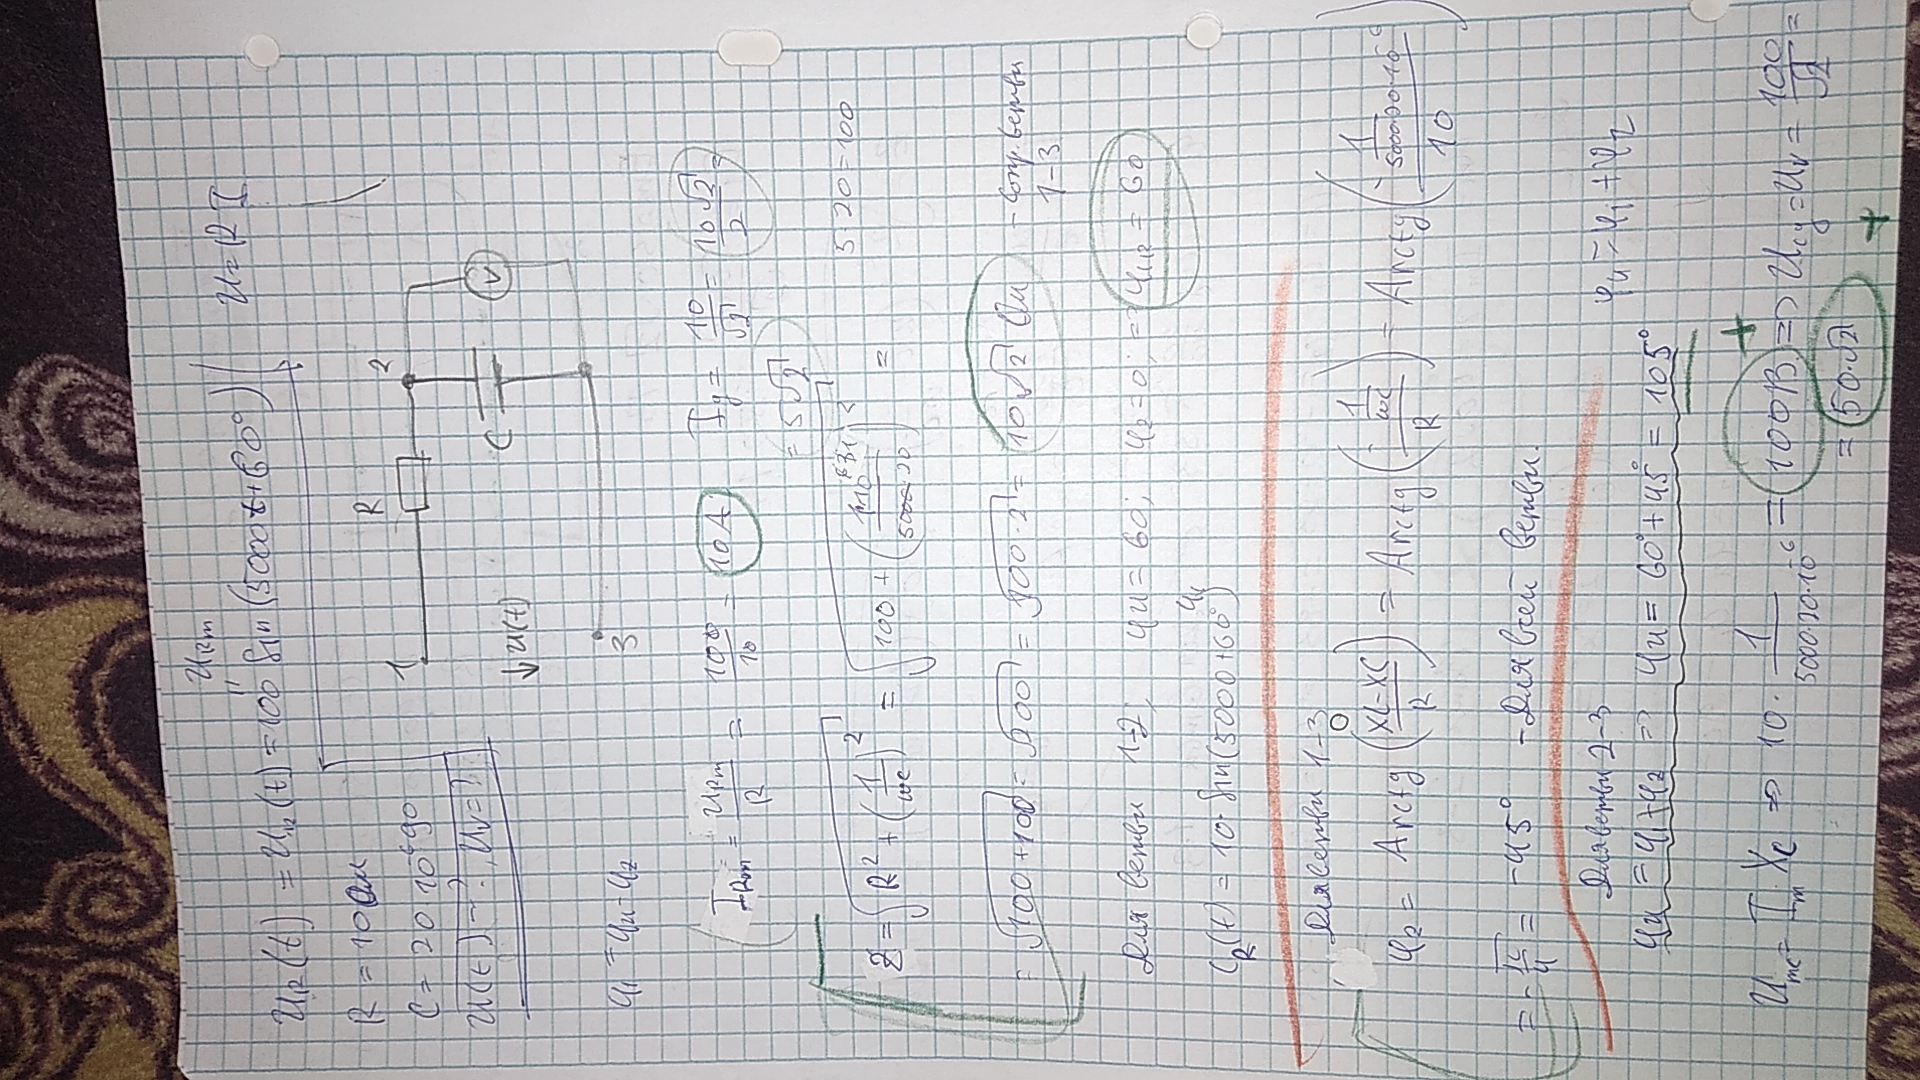 U_Rm
u_R(t) = u_12(t) = 100 sin(5000t+60°) u=RI
R = 10 Ом
C = 20 10^-6
u(t) - ?, U_V = ?
1 R 2
C V
↓ u(t)
3
φ_i = φ_u - φ_z
I_Rm = U_Rm/R = 100/10 = 10A I_д = 10/√2 = 10√2/2 =
= 5√2
5·20=100
Z = √(R² + (1/ωc)²) = √(100 + (1·10/(5000·20))²) =
= √(100+100) = √200 = √(100·2) = 10√2 Ом - Сопр. ветви
1-3
Для ветви 1-2; φu = 60; φz = 0; => = 60
i_R(t) = 10·sin(5000+60°) φ_i
Для ветви 1-3
φz = Arctg((XL-XC)/R) = Arctg((-1/ωc)/R) = Arctg((-1/(5000·20·10^-6))/10)
0
= -π/4 = -45° - Для всей ветви.
Для ветви 2-3 φu = φi + φz
φu = φi+φz => φu = 60°+45° = 105°
U_mc = I_m·X_C => 10 · 1/(5000·20·10^-6) = 100В => U_cд = U_V = 100/√2 =
+
= 50·√2
+